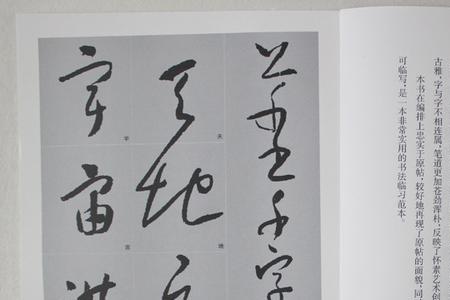 古雅，字与字不相连属，笔道更加苍劲浑朴，反映了怀素艺术创
本书在编排上忠实于原帖，较好地再现了原帖的面貌，同
可临写，是一本非常实用的书法临习范本。
千字
天地
天
地
宇宙
宇
宙